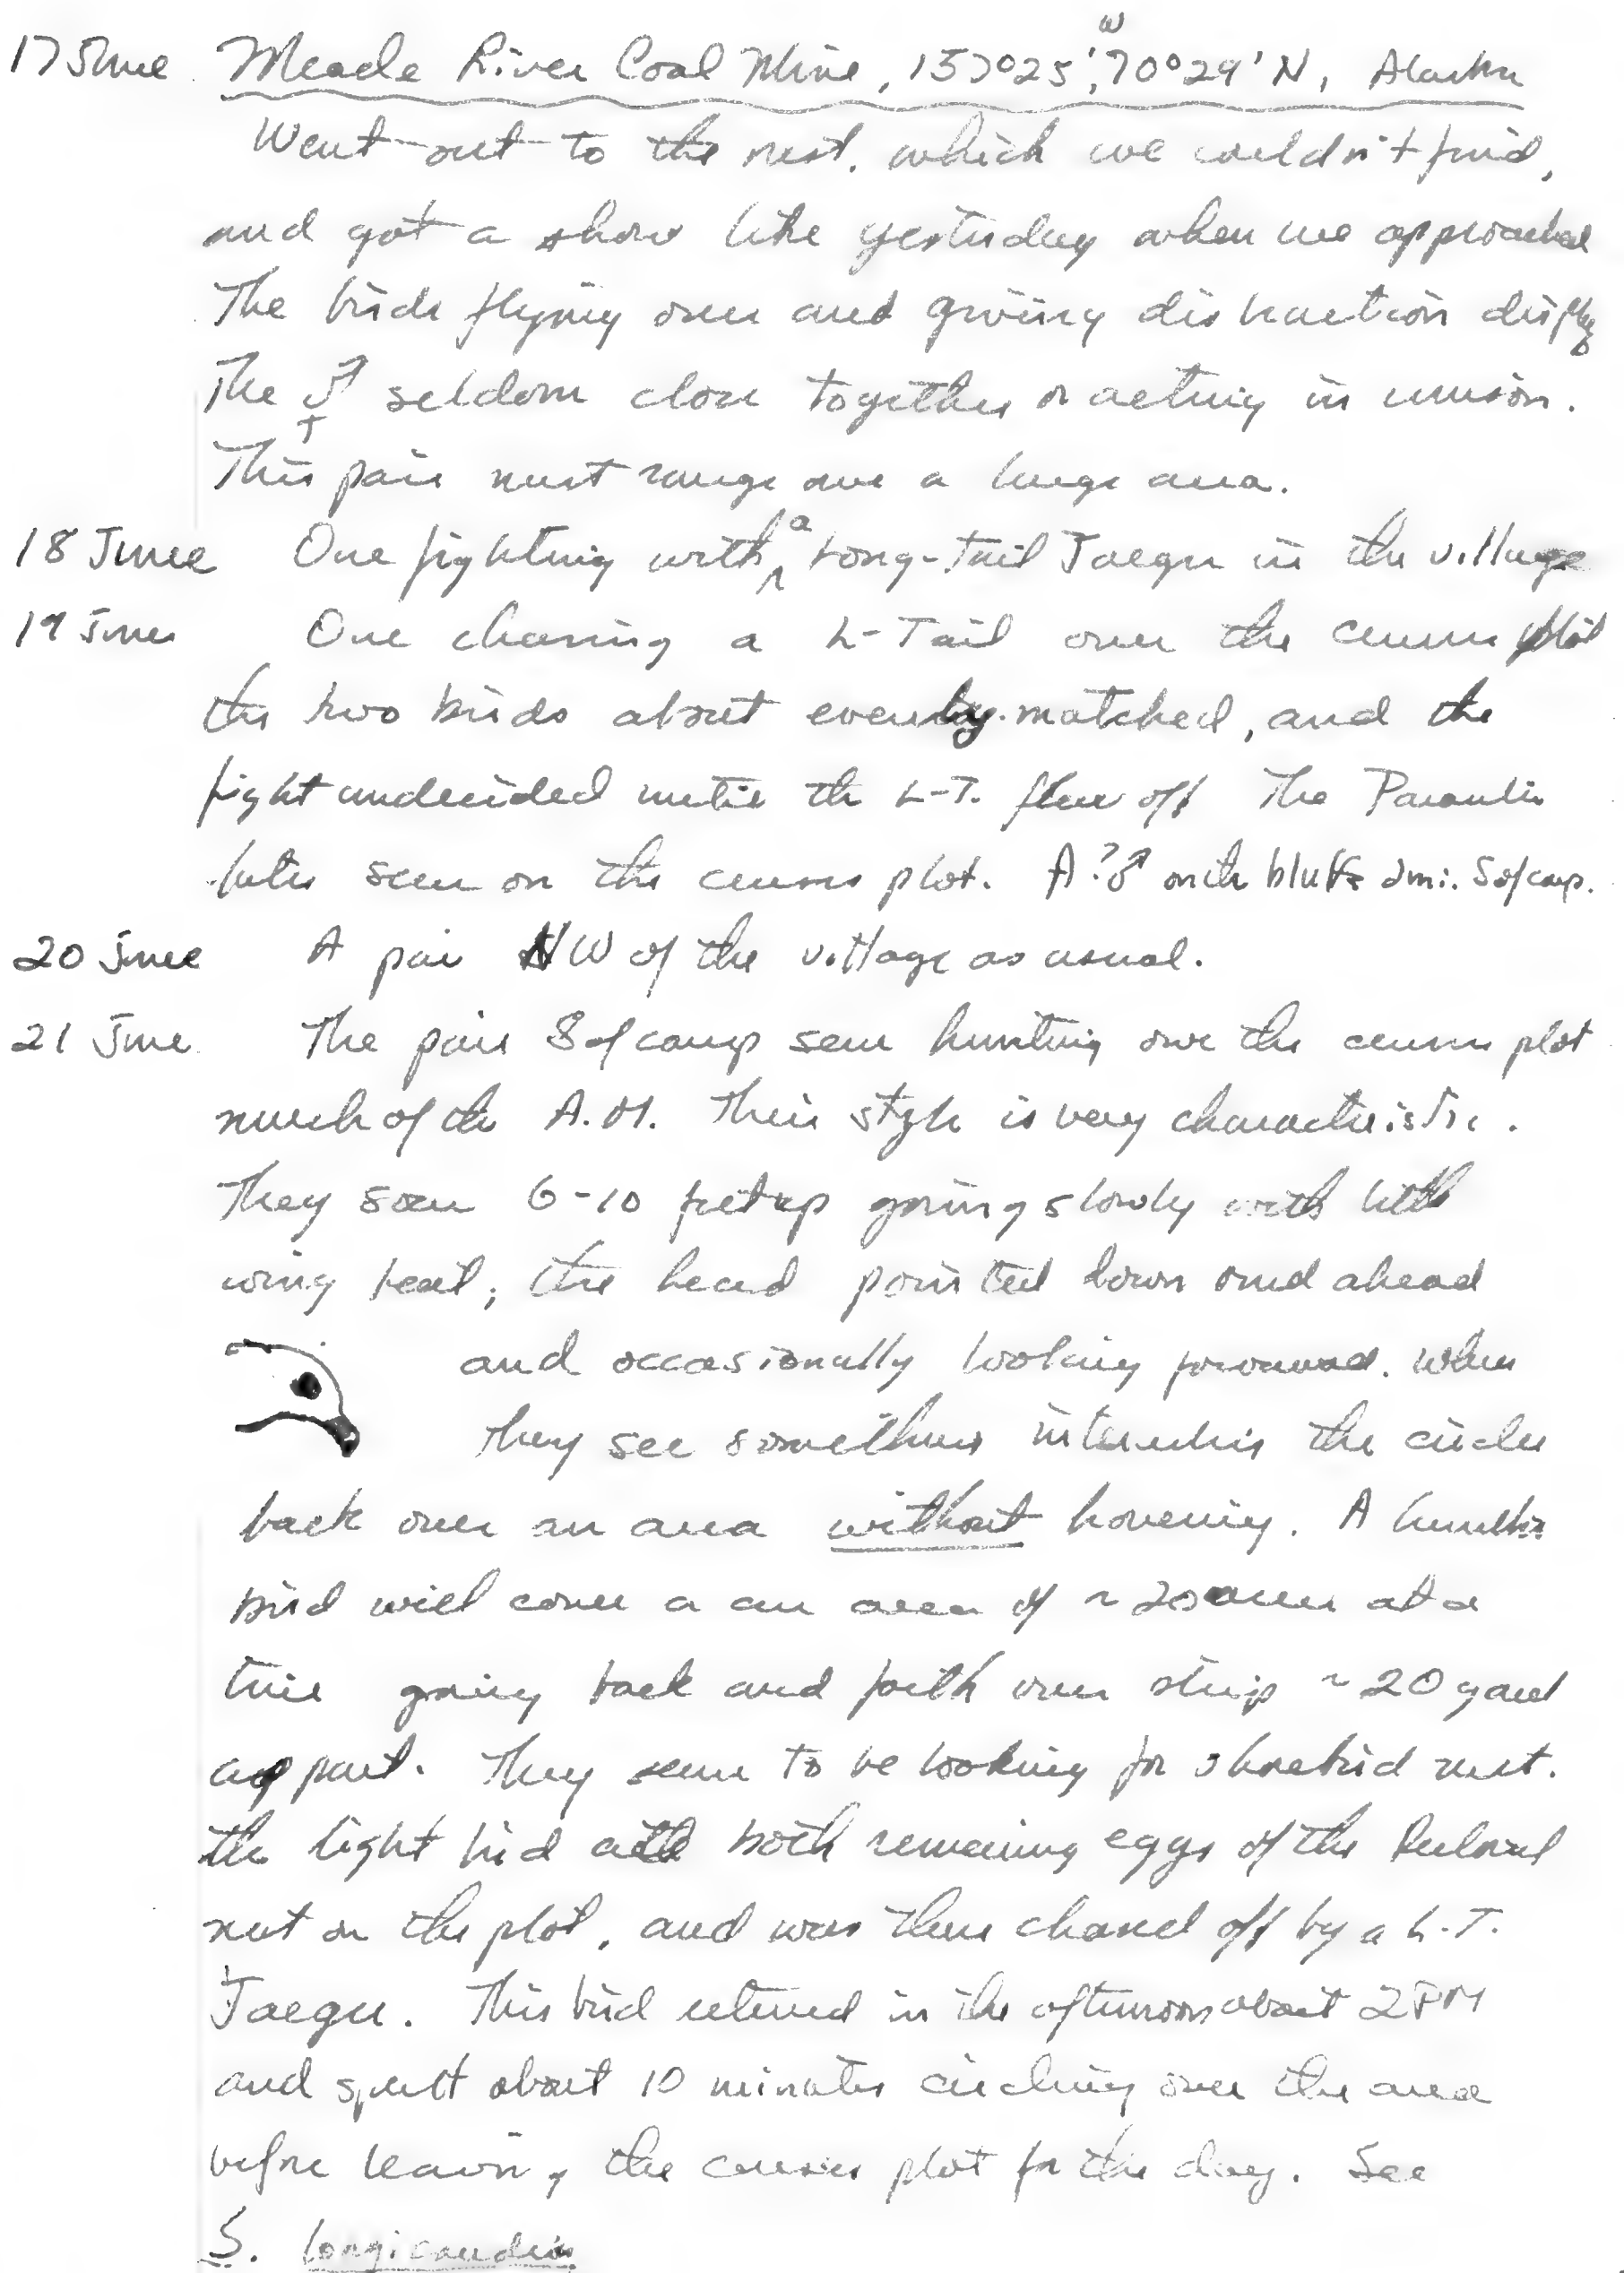 17 June Meade River Coal Mine, 157°25' W, 70°29' N, Alaska
Went out to the nest, which we couldn't find,
and got a show like yesterday when we approached
The birds flying over and giving distraction display
The ♂♀ seldom close together or acting in unison.
This pair must range over a large area.
18 June One fighting with a Long-Tail Jaeger in the village
19 June One chasing a L-Tail over the census plot
the two birds about evenly matched, and the
fight undecided until the L-T. flew off The Parasitic
later seen on the census plot. A ?♂ on the bluffs 2mi. S of camp.
20 June A pair NW of the village as usual.
21 June The pair S of camp seen hunting over the census plot
much of the A.M. Their style is very characteristic.
They soar 6-10 feet up going slowly with little
wing beat, the head pointed down and ahead
and occasionally looking forward. When
they see something interesting the circles
back over an area without hovering. A hunting
bird will cover a an area of ~ 20 acres at a
time going back and forth over strip ~ 20 yard
appart. They seem to be looking for shorebird nest.
the light bird ate both remaining eggs of the Red
nest on the plot, and was then chased off by a L.T.
Jaeger. This bird returned in the afternoon about 2 PM
and spent about 10 minutes circling over the area
before leaving the census plot for the day. See
S. longicaudus